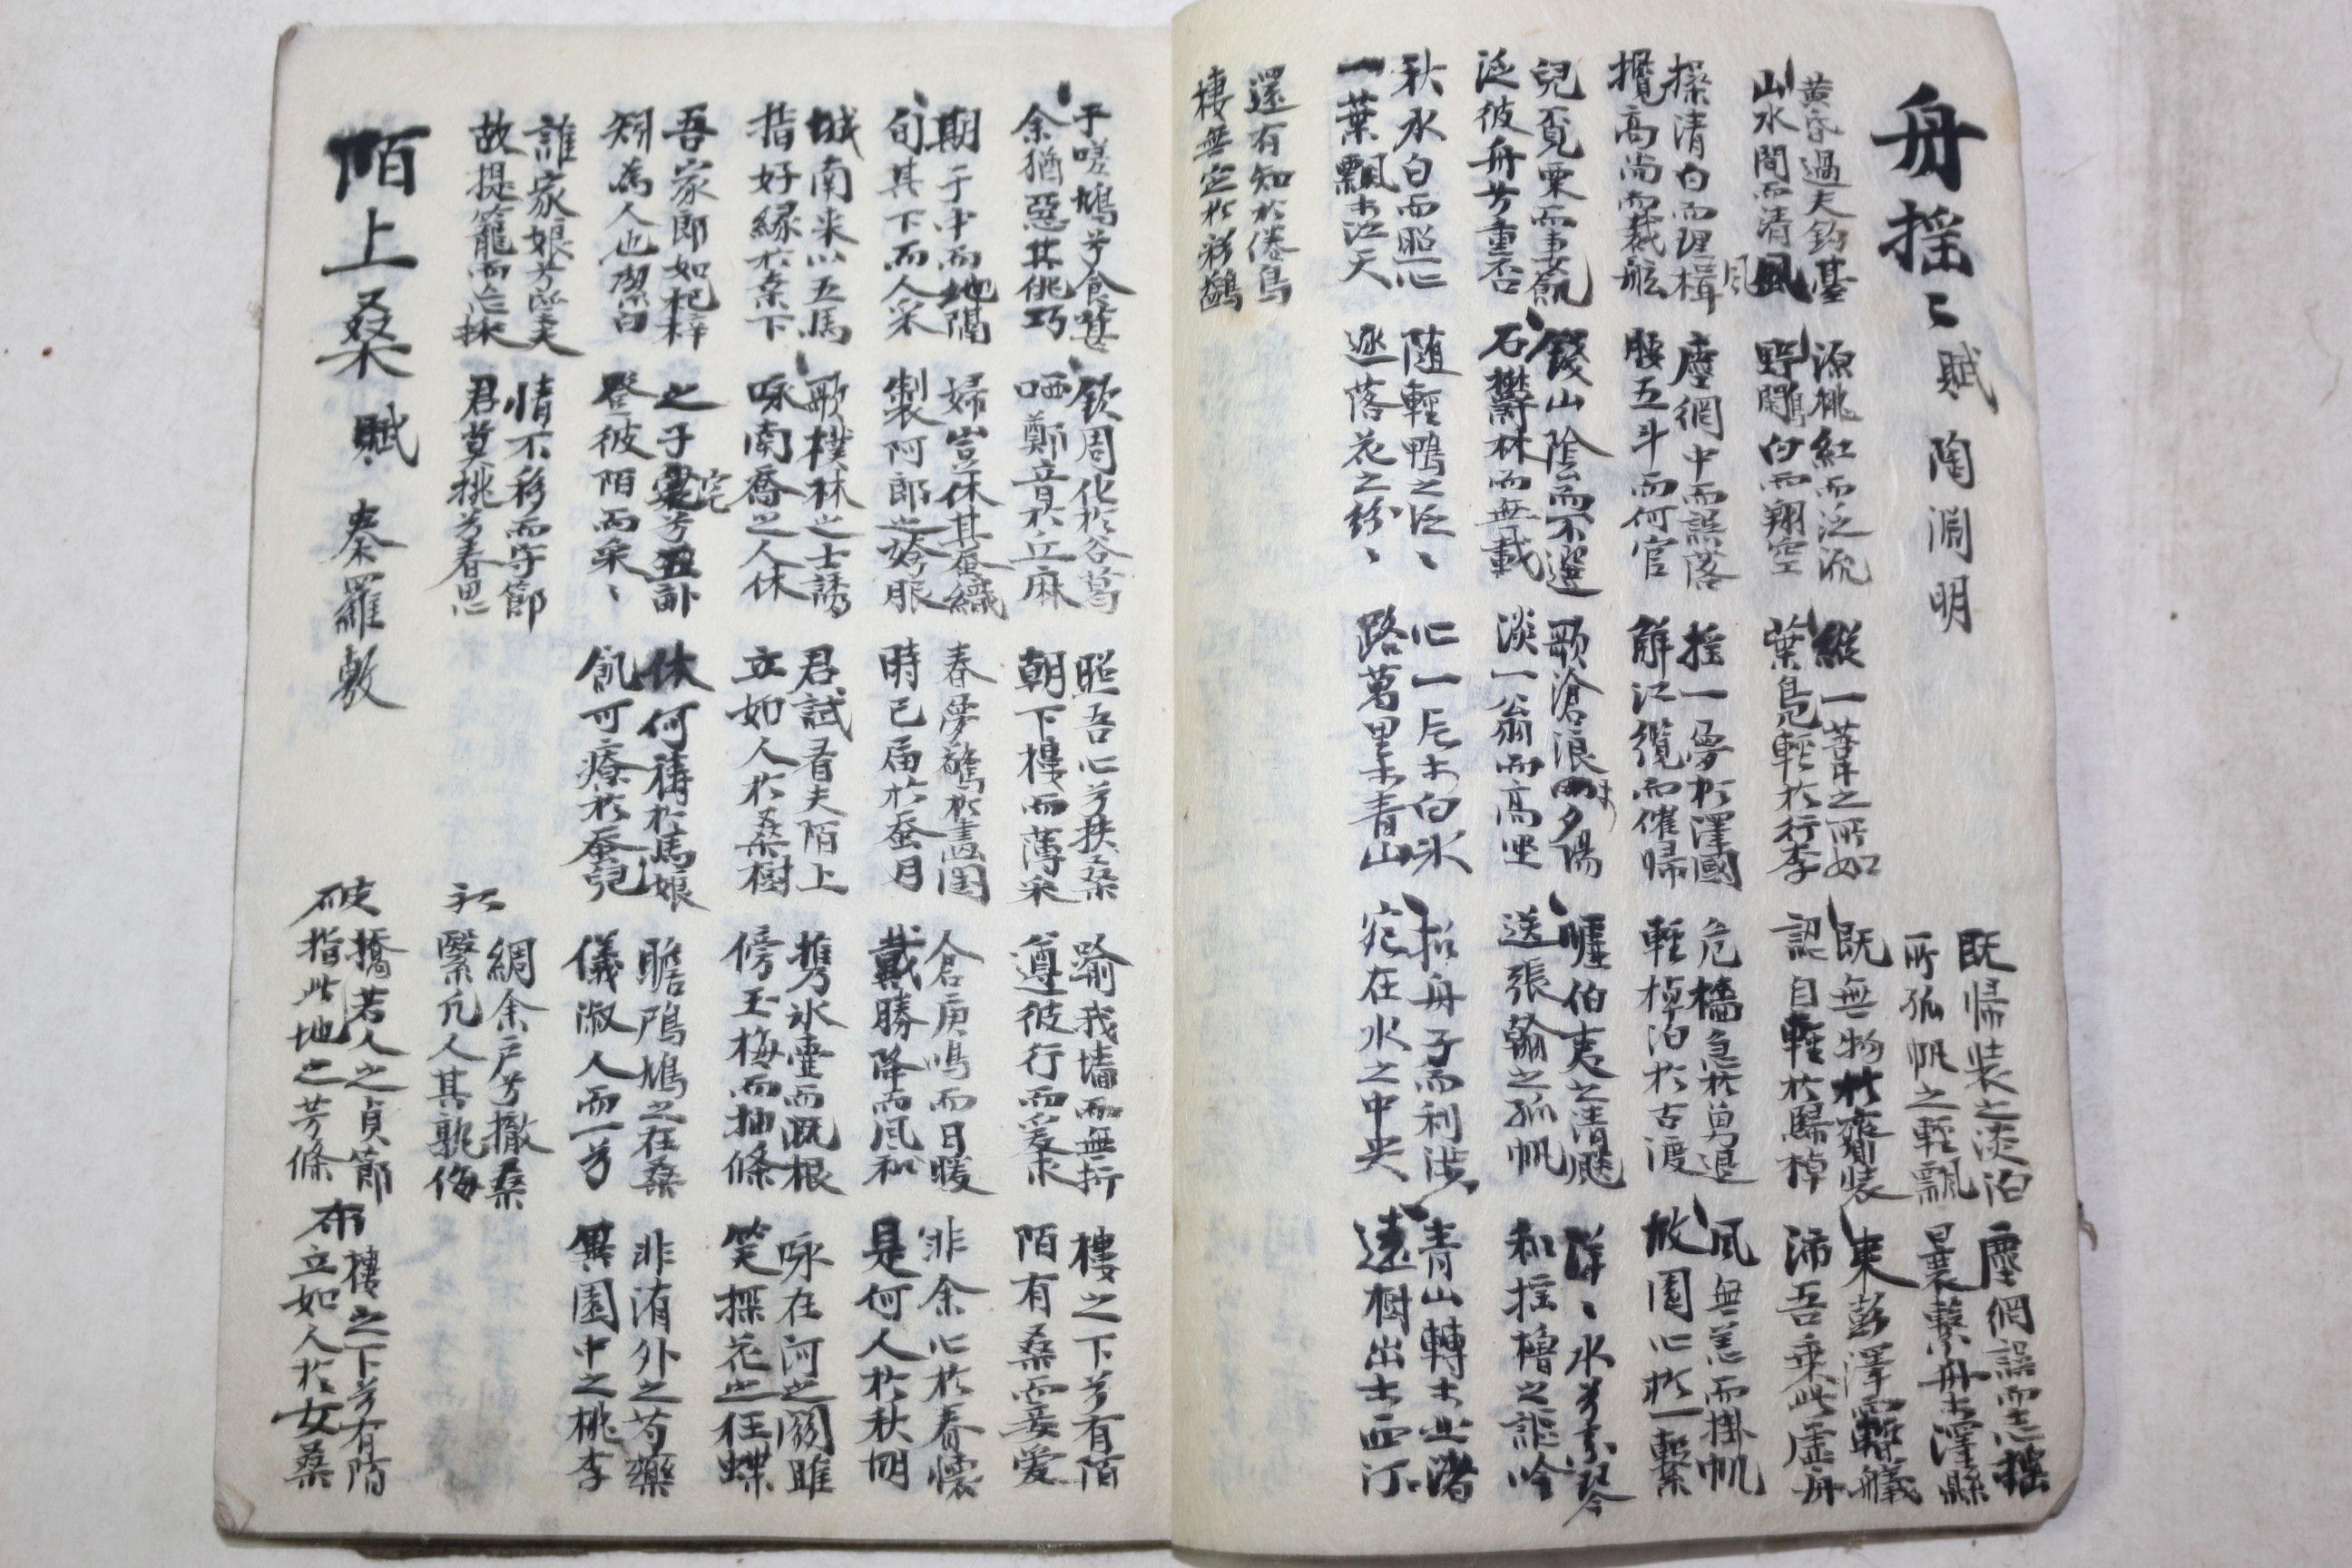 舟揺〻賦 陶淵明
既帰装之淡泊 塵網誤而志揺
所孤帆之軽飄 曩繫舟於澤縣
黄昏過夫釣基 源桃紅而泛流 縱一葦之所如 既無物於齎装 東彭澤而暫艤
山水間而清風 野鷳白而翔空 葉鳧軽於行李 認自軽於歸棹 沛吾乗此虚舟
操清白而理楫 塵網中而誤落 揺一夢於澤國 危檣急於勇退 風無恙而掛帆
攬高尚而裁舷 腰五斗而何官 解江纜而催帰 軽棹泊於古渡 故園心於一繫
兒覓栗而事飢 錢山陰而不選 歌滄浪於夕陽 嘘伯夷之清飈 洋〻水兮素琴
泛彼舟兮重否 石欝林而無載 淡一翁而高坐 送張翰之孤帆 和揺櫓之謳吟
秋水白而照心 随輕鴨之泛〻 心一片於白水 招舟子而利渉 青山轉於此渚
一葉飄於江天 逐落花之紛〻 路萬里於青山 宛在水之中央 遠樹出於西汀
還有知於倦鳥
棲無定於彩鷁
于嗟鳩兮食葚 欽周化於谷葛 照吾心兮扶桑 踰我墻而無折 樓之下兮有陌
余猶惡其佻巧 哂鄭音於丘麻 朝下樓而薄采 遵彼行而爰求 陌有桑而妾愛
期于中而地隔 婦豈休其蚕織 春夢驚於晝園 倉庚鳴而日暖 非余心於春懐
旬其下而人采 製阿郎之姱服 時已届於蚕月 戴勝降而風和 是何人於秋胡
城南来以五馬 歌樸棫之士誘 君試看夫陌上 携氷靈而既根 咏在河之関雎
指好縁於桑下 咏南喬之人休 立如人於桑樹 傍玉梅而抽條 笑探花之狂蝶
吾家郎如杞梓 之子宛兮 休何構於馬娘 瞻鳲鳩之在桑 非洧外之芍藥
矧為人也潔白 登彼陌而采〻 飢可療於蚕兒 儀淑人而一兮 異園中之桃李
誰家娘兮啎夫 情不移而守節 綢余戶兮撤桑
故提籠而冶採 君莫挑兮春思 緊凢人其孰侮
陌上桑賦 秦羅敷
橋若人之貞節 樓之下兮有陌
破指此地之芳條 立如人於女桑